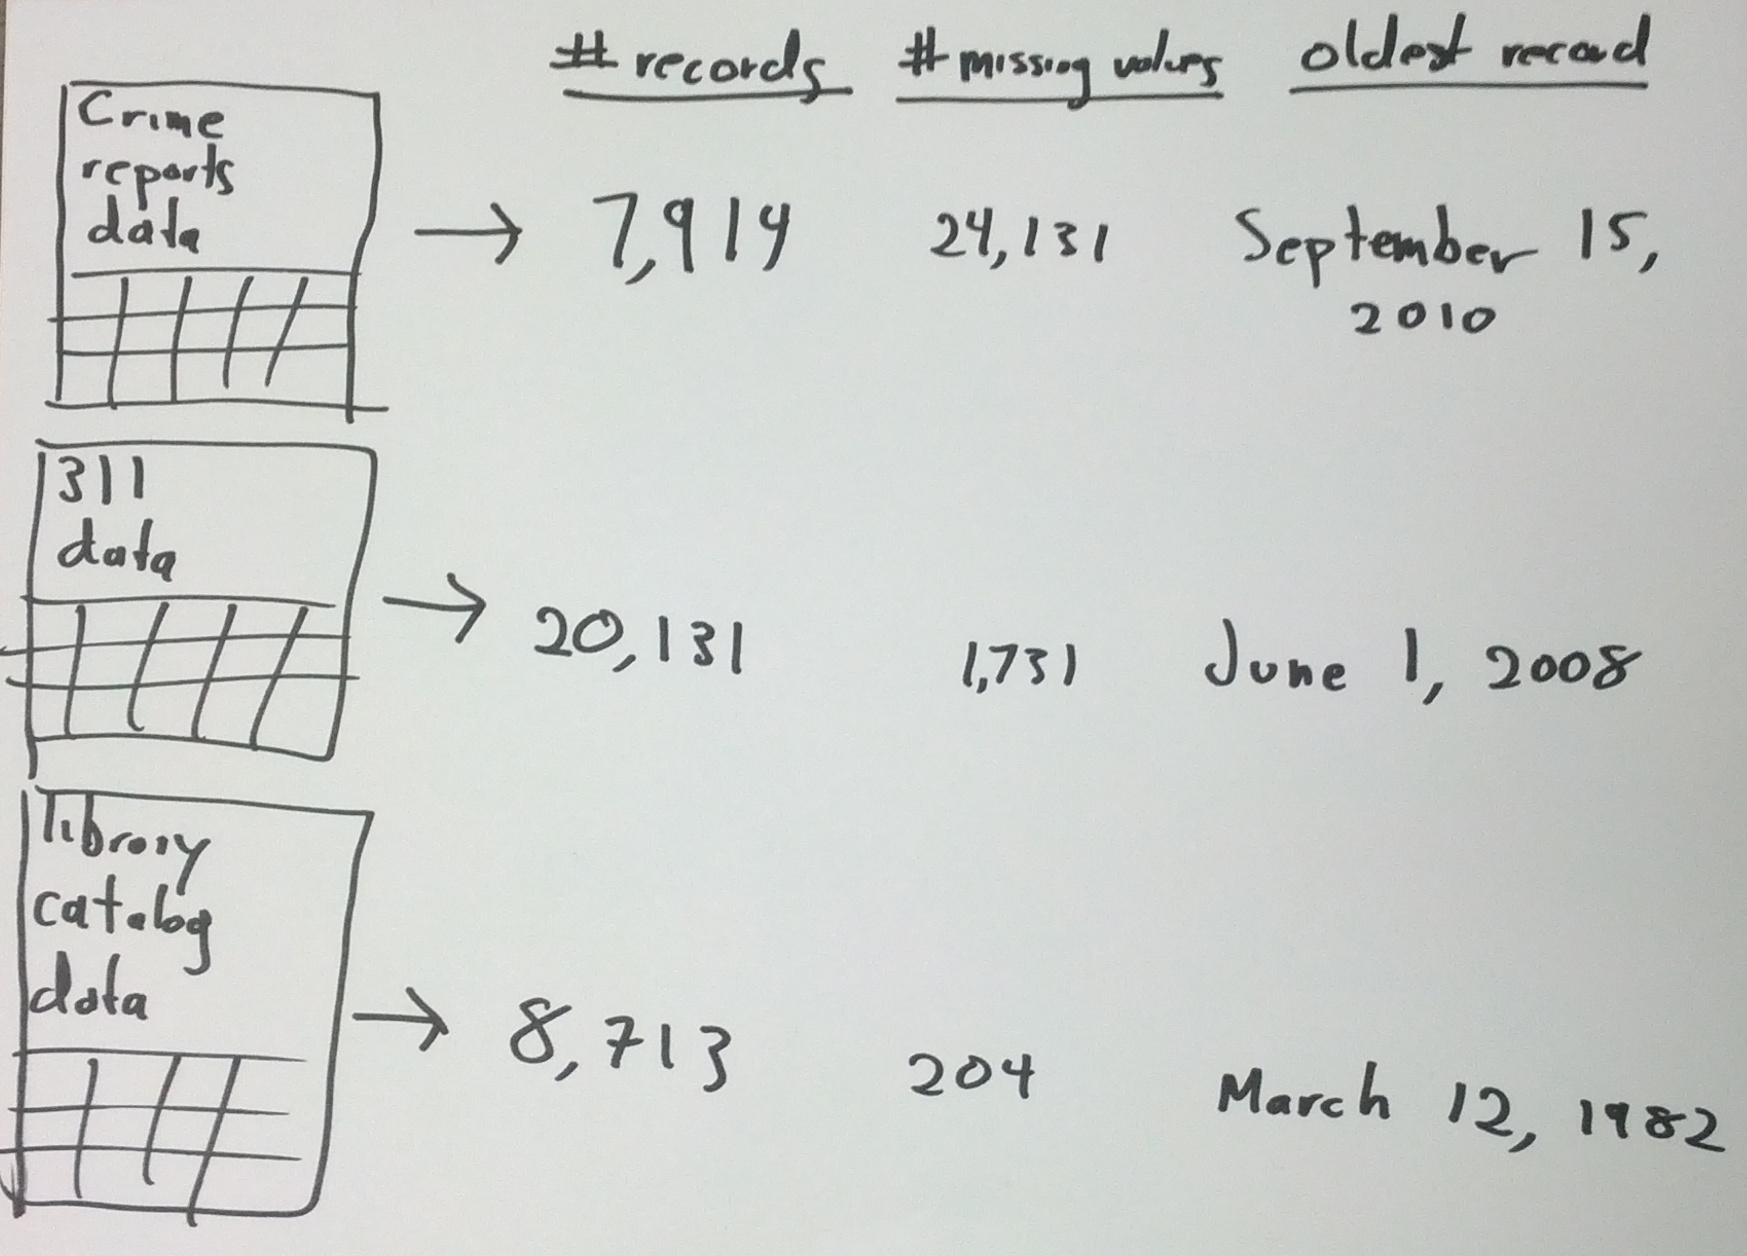 # records # missing values oldest record
Crime
reports
data
7,914 24,131 September 15,
2010
311
data
20,131 1,731 June 1, 2008
library
catalog
data
8,713 204 March 12, 1982